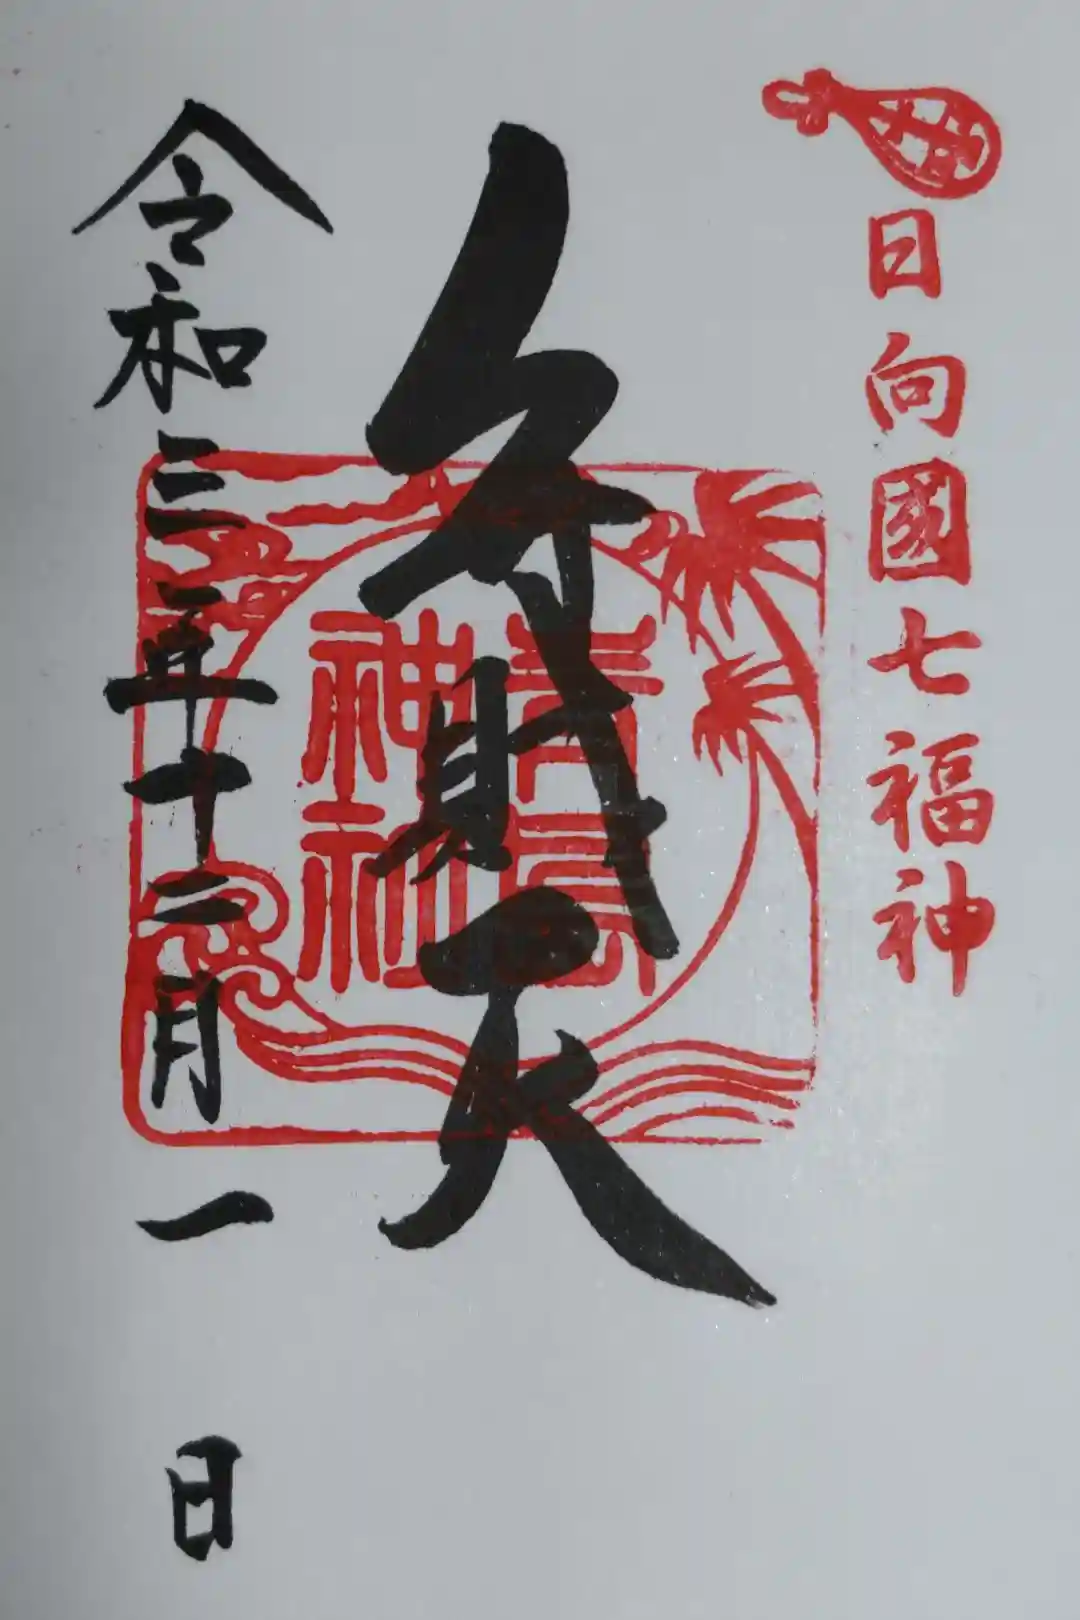 日向國七福神
弁財天
青島
神社
令和三年十二月一日